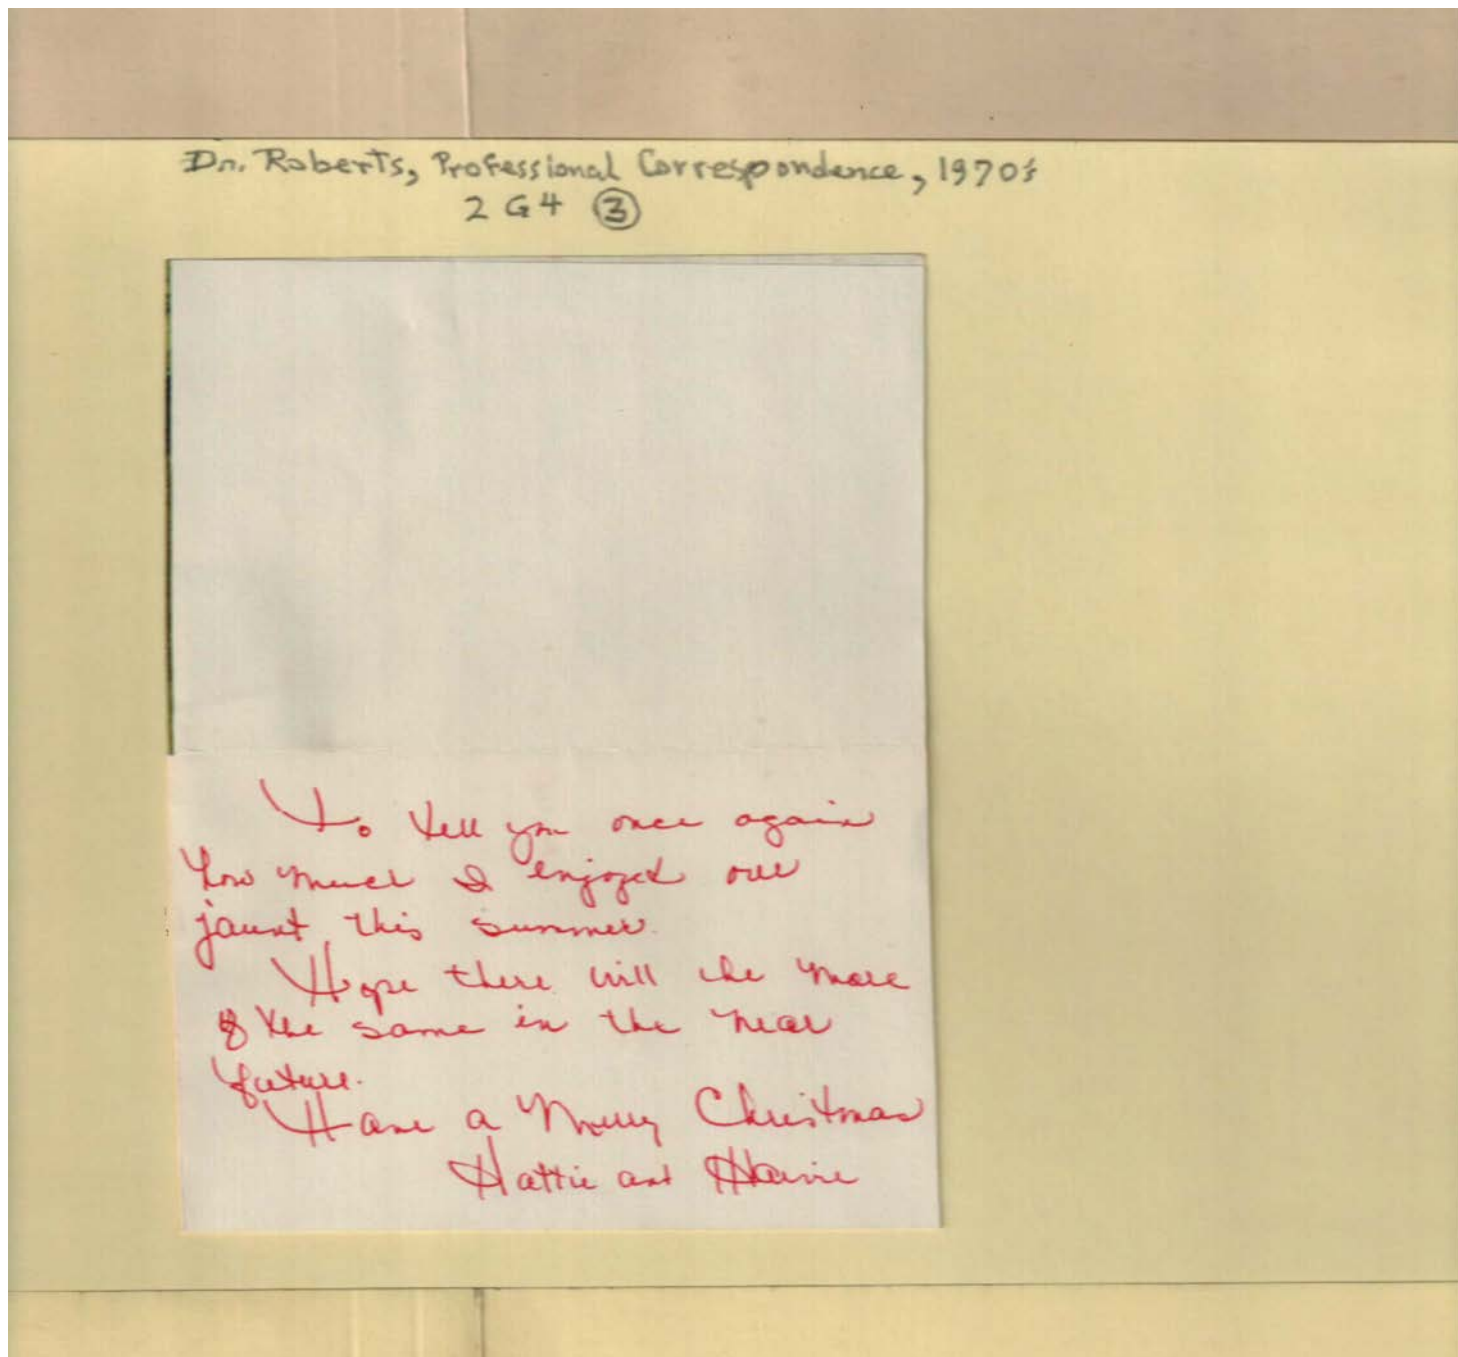 Dr. Roberts, Professional Correspondence, 1970's
2 G 4 ③
To tell you once again
how much I enjoyed our
jaunt this summer.
Hope there will be more
of the same in the near
future.
Have a Merry Christmas
Hattie and